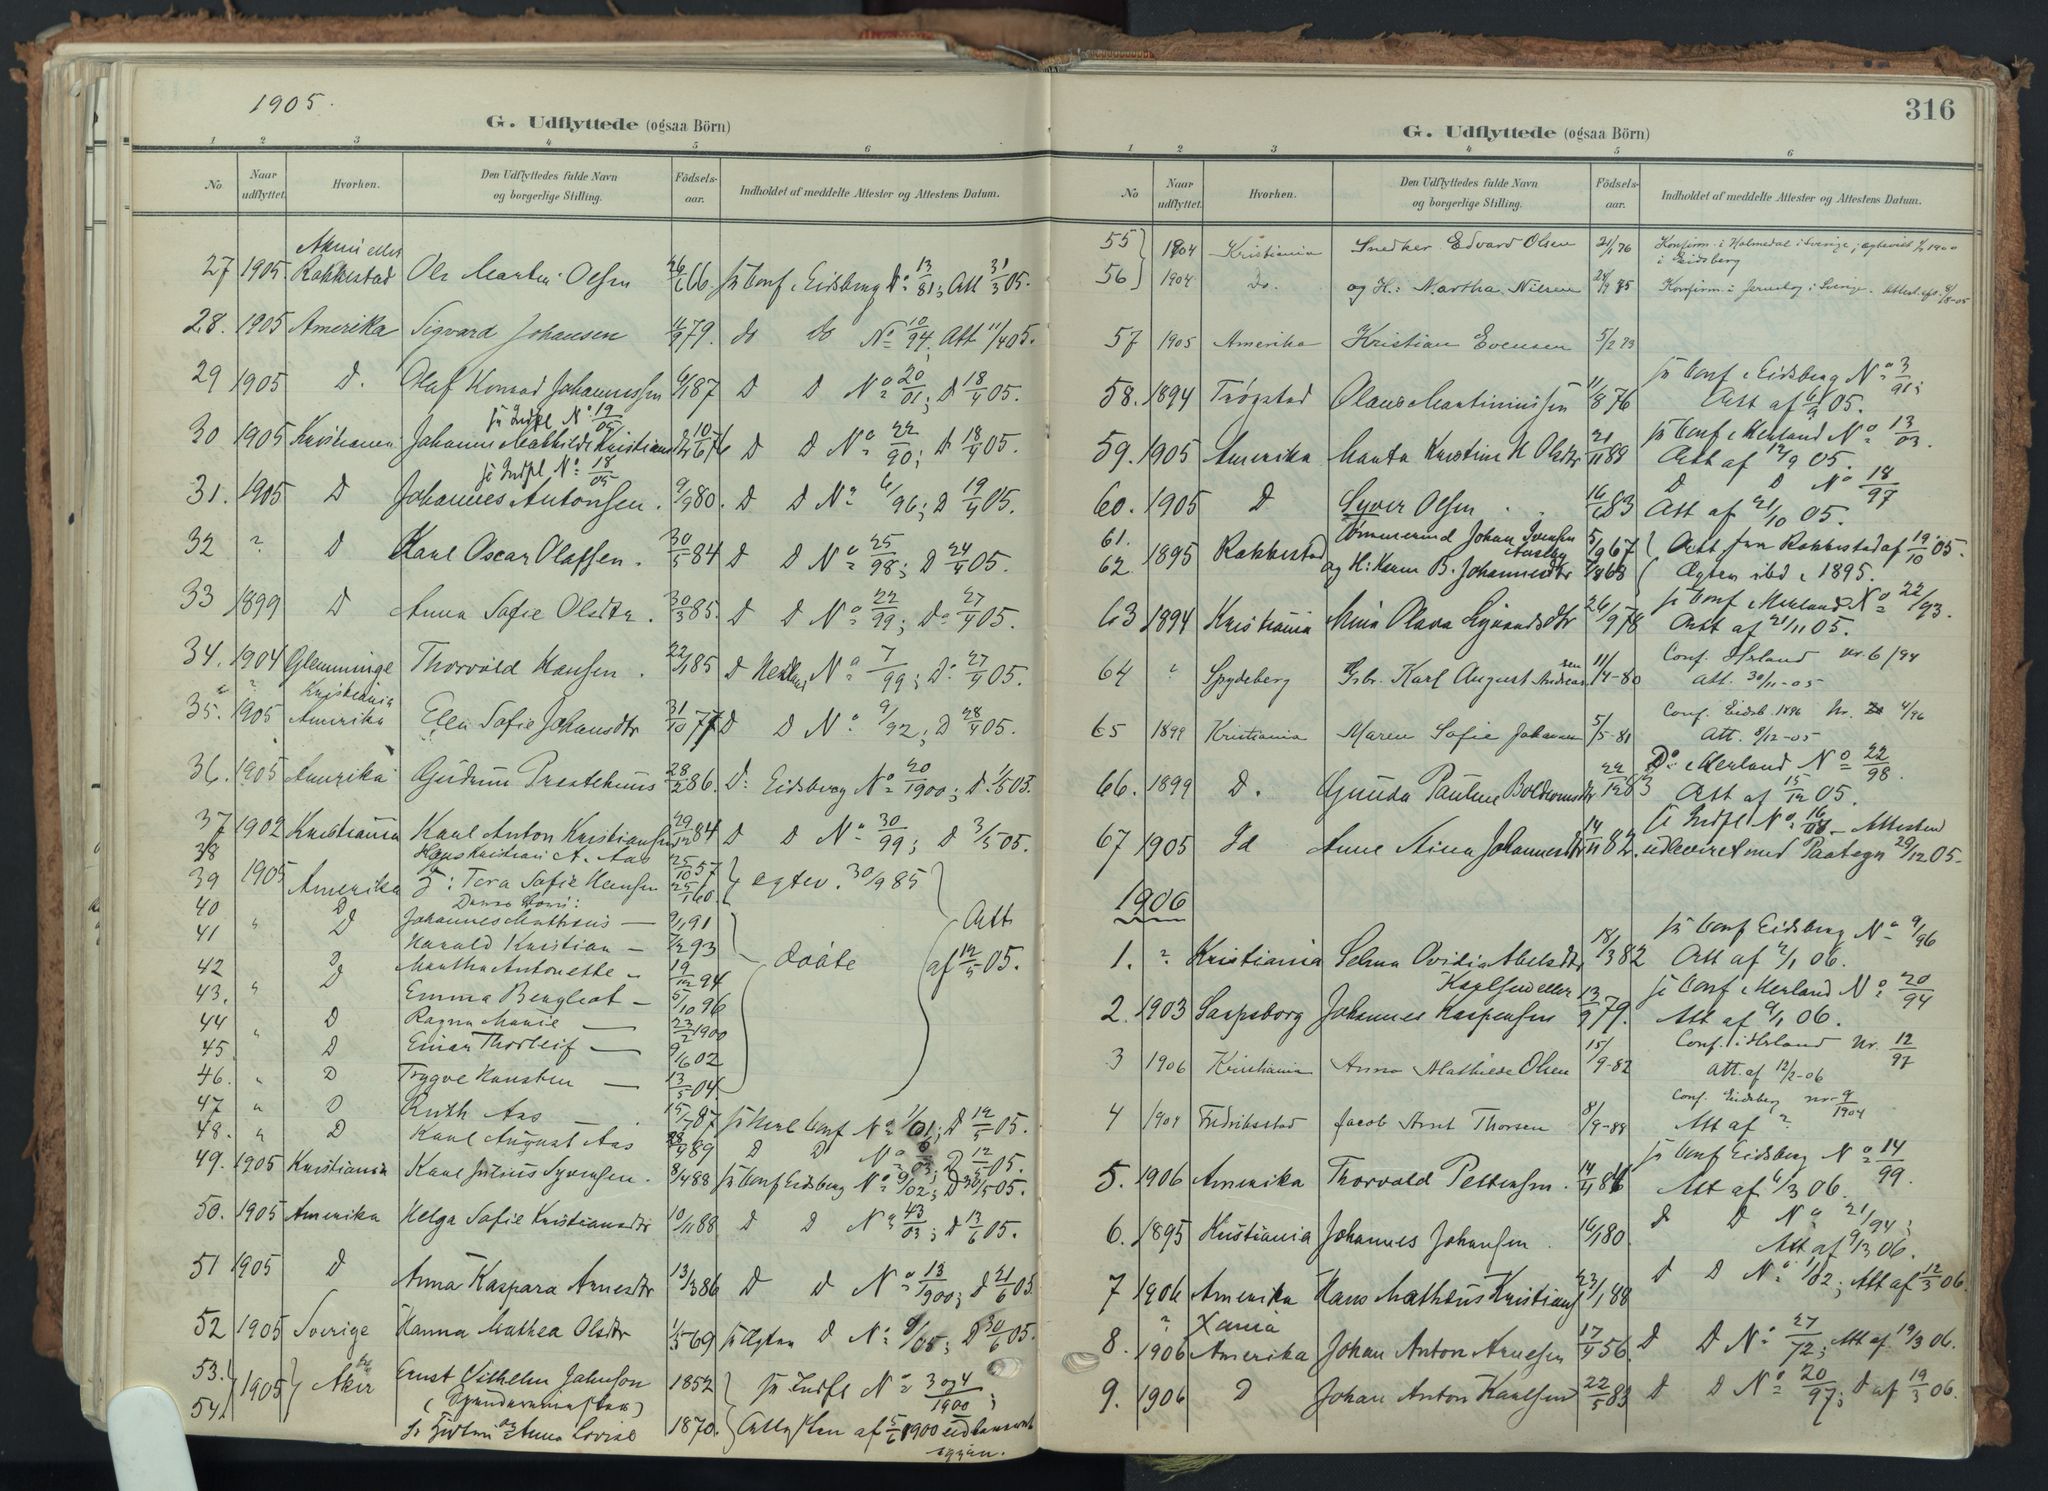 1905.
G. Udflyttede (ogsaa Börn)
1 2 3 4 5 6
No Naar udflyttet. Hvorhen. Den Udflyttedes fulde Navn og borgerlige Stilling. Födsels-aar. Indholdet af meddelte Attester og Attestens Datum.
27 1905 Rakkestad Ole Martin Olsen 26/6 66. Conf. Eidsberg No 13/81; Att 31/3 05.
28. 1905 Amerika Sigvard Johansen 11/9 79. do do No 10/94; Att 11/4 05.
29 1905 D. Olaf Konrad Johannessen 6/1 87 D D No 20/01; D 18/4 05.
Indfl No 19/05
30 1905 Kristiania Johanne Mathilde Kristiansd D D No 22/90; D 18/4 05.
Indfl No 18/05
31. 1905 D Johannes Antonsen. 9/9 80. D D No 6/96; D 19/4 05.
32 ? D Karl Oscar Olafsen. 30/5 84 D D No 25/98; D 24/4 05.
33 1899 D Anna Sofie Olsdtr. 30/3 85. D D No 22/99; Do 27/4 05.
34. 1904 Glemminge Thorvald Hansen. 22/1 85 D No 7/99; Do 27/4 05.
Kristiania
35. 1905 Amerika Elen Sofie Johansdtr 31/10 77 D D No 9/92; D 28/4 05.
36. 1905 Amerika Gudrun Prestehuus 28/2 86. D: Eidsberg No 20/1900; D. 1/5 05.
37 1902 Kristiania Karl Anton Kristiansen 29/12 84 D D No 30/99; D 3/5 05.
38 Hans Kristian A. Aas 25/10 57
39 1905 Amerika Tora Sofie Hansen 25/1 60. egtev. 30/9 85
40 " D Johannes Mathæus — 9/1 91
41 Harald Kristian — 7/2 93
42 D Martha Antonette — 19/12 94 Att af 12/5 05.
43. " Emma Bergliot — 5/10 96
44 D Ragna Marie — 23/2 1900
45. " D Einar Thorleif — 9/6 02
46. " D Trygve Karsten — 13/5 04.
47 " D Ruth Aas 15/7 87 Conf No 1/01; D 12/5 05.
48. " D Karl August Aas D D No D 12/5 05.
49. 1905 Kristiania Karl Julius Syversen. 8/4 88 Conf Eidsberg No 9/02; D
50. 1905 Amerika Helga Sofie Kristiansdtr 10/11 88 D D No 43/03; D 13/6 05.
51 1905 D Anna Kaspara Arnesdtr 13/3 86 D D No 13/1900; D 21/6 05.
52 1905 Sverige Hanna Mathea Olsdtr 1/5 69 D No 9/05; D 30/6 05.
53. 1905 Aker Ernst Vilhelm Johnson 1852 Indfl No 3 og 4/1900;
54. Anna Lovise 1870. af 5/6 1900
316
G. Udflyttede (ogsaa Börn)
1 2 3 4 5 6
No Naar udflyttet. Hvorhen. Den Udflyttedes fulde Navn og borgerlige Stilling. Födsels-aar. Indholdet af meddelte Attester og Attestens Datum.
55 1904 Kristiania Snedker Edvard Olsen 21/1 76 Konfirm. i Holmedal i Sverige;
i Eidsberg
56 1904 Do. og H: Martha Nilsen Konfirm. i Sverige.
57 1905 Amerika Kristian Evensen 5/2 83
Conf. Eidsberg No 3/91;
58. 1894 Trøgstad Olaus Martiniussen 11/8 76 Att af 6/9 05.
Conf. Herland No 13/03.
59. 1905 Amerika Marta Kristine K Olsdtr 21/11 88 Att af 12/9 05.
D D No 18/97
60. 1905 D Syver Olsen 16/6 83 Att af 21/10 05.
61. Tømmermd Johan Svensen 5/9 67 Att fra Rakkestad af 19/10 05.
62. 1895 Rakkestad og H: Karen B. Johannesdtr 68 Egtev. ibd. 1895.
Conf. Herland No 22/93.
63 1894 Kristiania Olava Sigvardsdtr 26/9 78 Att af 21/11 05.
Conf. Herland nr. 6/94
64 " Spydeberg Gsbr. Karl August Andreassen 11/4-80 Att. 30/11-05
Conf. Eidsb. 1896 Nr. 4/96
65 1899 Kristiania Maren Sofie Johansen 5/5-81 Att. 8/12-05
Do. Herland No 22/98.
66. 1899 D. Gunda Pauline 22/12 83 Att af 15/12 05.
Indfl No 16/04 - Attesten
67 1905 Id Anne Mina Johannesdtr 14/11 82. udleveret med Paategn 29/12 05.
1906
Conf Eidsberg No 9/96
1. ? Kristiania Selma Ovidia Abelsdtr 18/3 82 Att af 2/1 06.
Karlsen eller Conf. Herland No 20/94
2. 1903 Sarpsborg Johannes Kaspersen 13/9 79. Att af 9/1 06.
Conf. i Herland Nr. 12/97
3 1906 Kristiania Anna Mathilde Olsen 15/9-82 Att. af 12/2-06
Conf. Eidsberg nr. 9/1904
4 1904 Fredriksstad Jacob Arnt Thorsen 8/9-88 Att af ?
Conf Eidsberg No 14/99.
5. 1906 Amerika Thorvald Pettersen. Att af 6/3 06.
D D No 21/94;
6. 1895 Kristiania Johannes Johansen. 16/1 80. Att af 9/3 06.
7 1906 Amerika Hans Mathæus Kristians 23/1 88 D D No 1/02; Att af 12/3 06.
? Xania
8. 1906 Amerika Johan Anton Arnesen 17/4 56. D D No 27/72; Att af 19/3 06.
9. 1906 D Johan Anton Karlsen 22/5 83 D D No 20/97; D af 19/3 06.